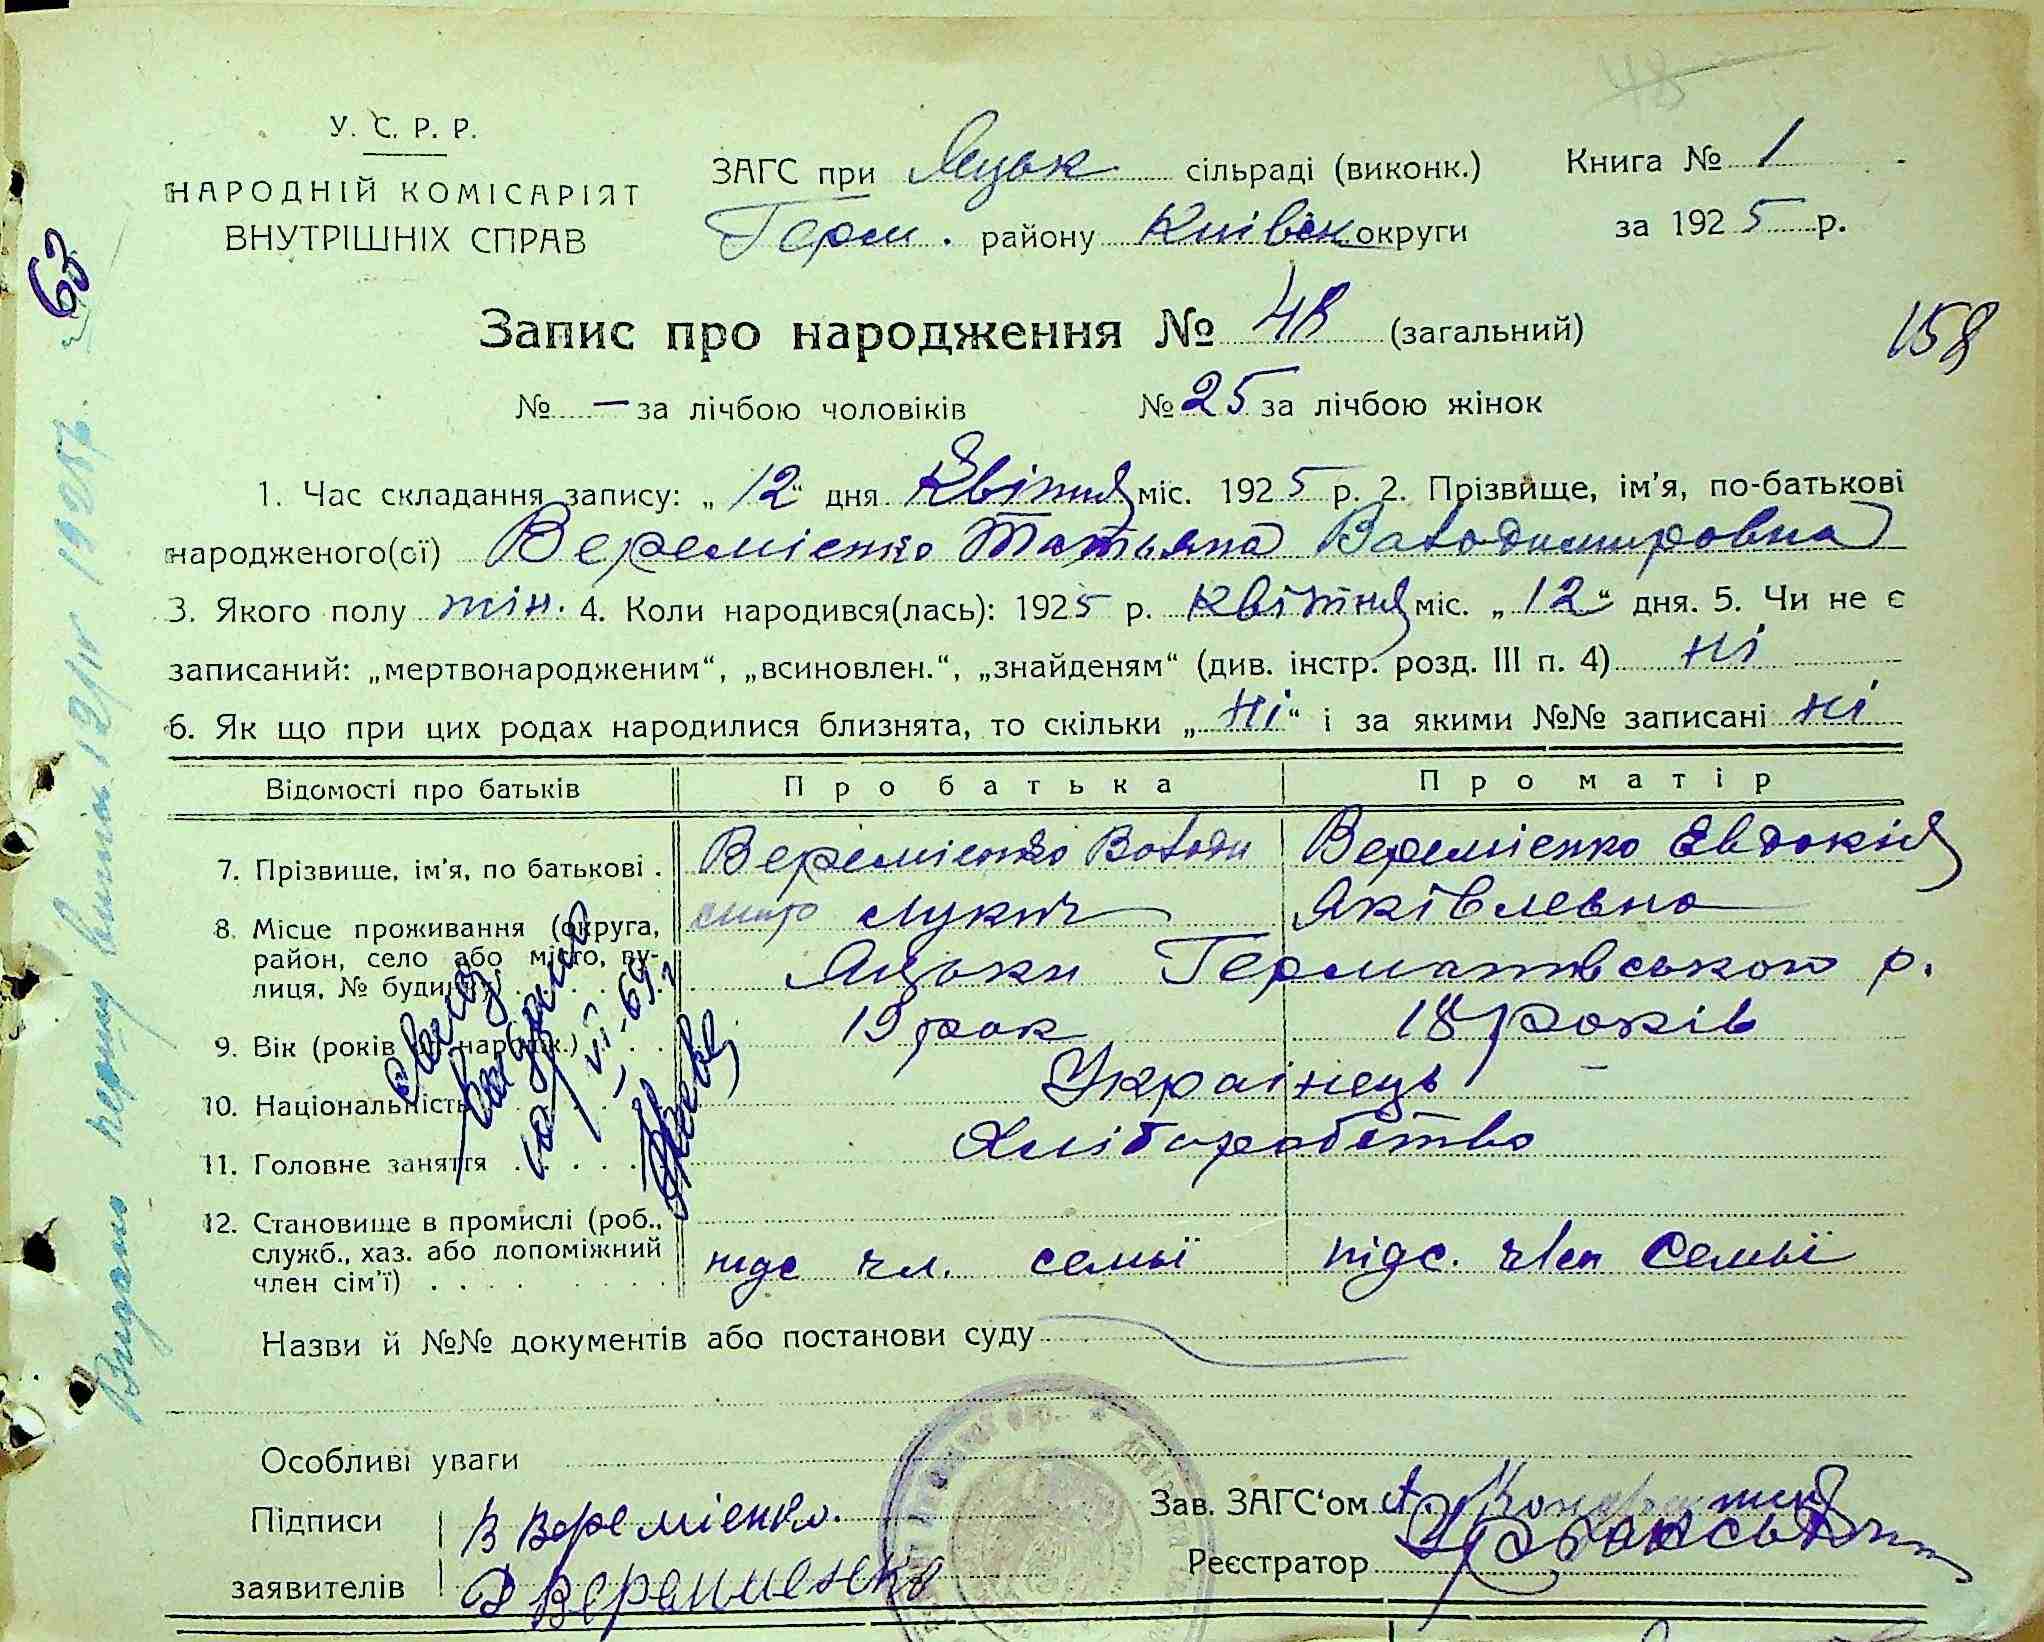 У. С. Р. Р.
НАРОДНІЙ КОМІСАРІЯТ
ВНУТРІШНІХ СПРАВ
ЗАГС при Яцьк сільраді (виконк.)
Герм. району Київськ округи
Книга № 1
за 1925 р.
63
Запис про народження № 48 (загальний)
158
№ — за лічбою чоловіків № 25 за лічбою жінок
1. Час складання запису: „12“ дня Квітня міс. 1925 р. 2. Прізвище, ім'я, по-батькові
народженого(ої) Веремієнко Татьяна Володимировна
3. Якого полу жін. 4. Коли народився(лась): 1925 р. Квітня міс. „12“ дня. 5. Чи не є
записаний: „мертвонародженим“, „всиновлен.“, „знайденям“ (див. інстр. розд. III п. 4) ні
6. Як що при цих родах народилися близнята, то скільки „ні“ і за якими №№ записані ні
Відомості про батьків Про батька Про матір
7. Прізвище, ім'я, по батькові . Веремієнко Володи Веремієнко Евдокия
мир Лукич Яківлевна
8. Місце проживання (округа,
район, село або місто, ву-
лиця, № будинку) Яцьки Германівського р.
9. Вік (років 19 рок 18 років
10. Національність Українець
11. Головне заняття Хліборобство
12. Становище в промислі (роб.,
служб., хаз. або допоміжний
член сім'ї) підс чл. семьї підс. член семьї
Назви й №№ документів або постанови суду
Особливі уваги
Підписи В Веремієнко.
заявителів Веремиенко
Зав. ЗАГС'ом
Реєстратор